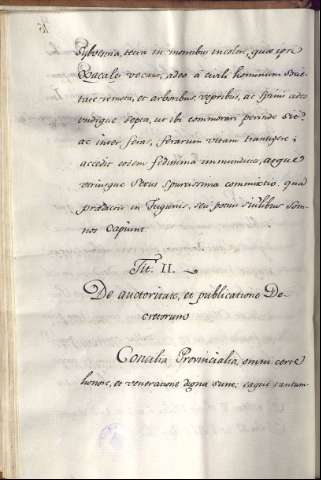 Sylvestria, tecta in montibus incolere, quæ ipsi
Bacalis vocant, adeo à civili hominum Socie-
tate remota, et arboribus, vepribus, ac spinis adeo
undique septa, ut ibi commorari perinde sit
ac inter feras, ferarum vitam transigere;
accedit eorum fœdissima immunditia, atque
utriusque Sexus spurcissima commixtio, qua
prædicti in Tuguriis, seu potius suilibus som-
nos capiunt.
Tit. II.
De auctoritate, et publicatione De-
cretorum
Concilia Provincialia, omni certe
honore, et veneratione digna sunt, eaque tantum